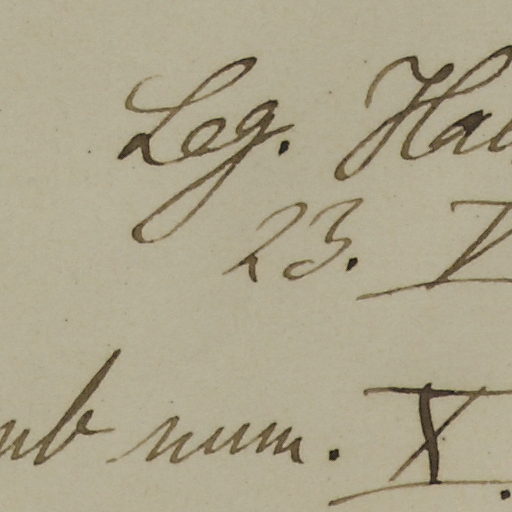 Leg. Ha
23. V
sub num. X.